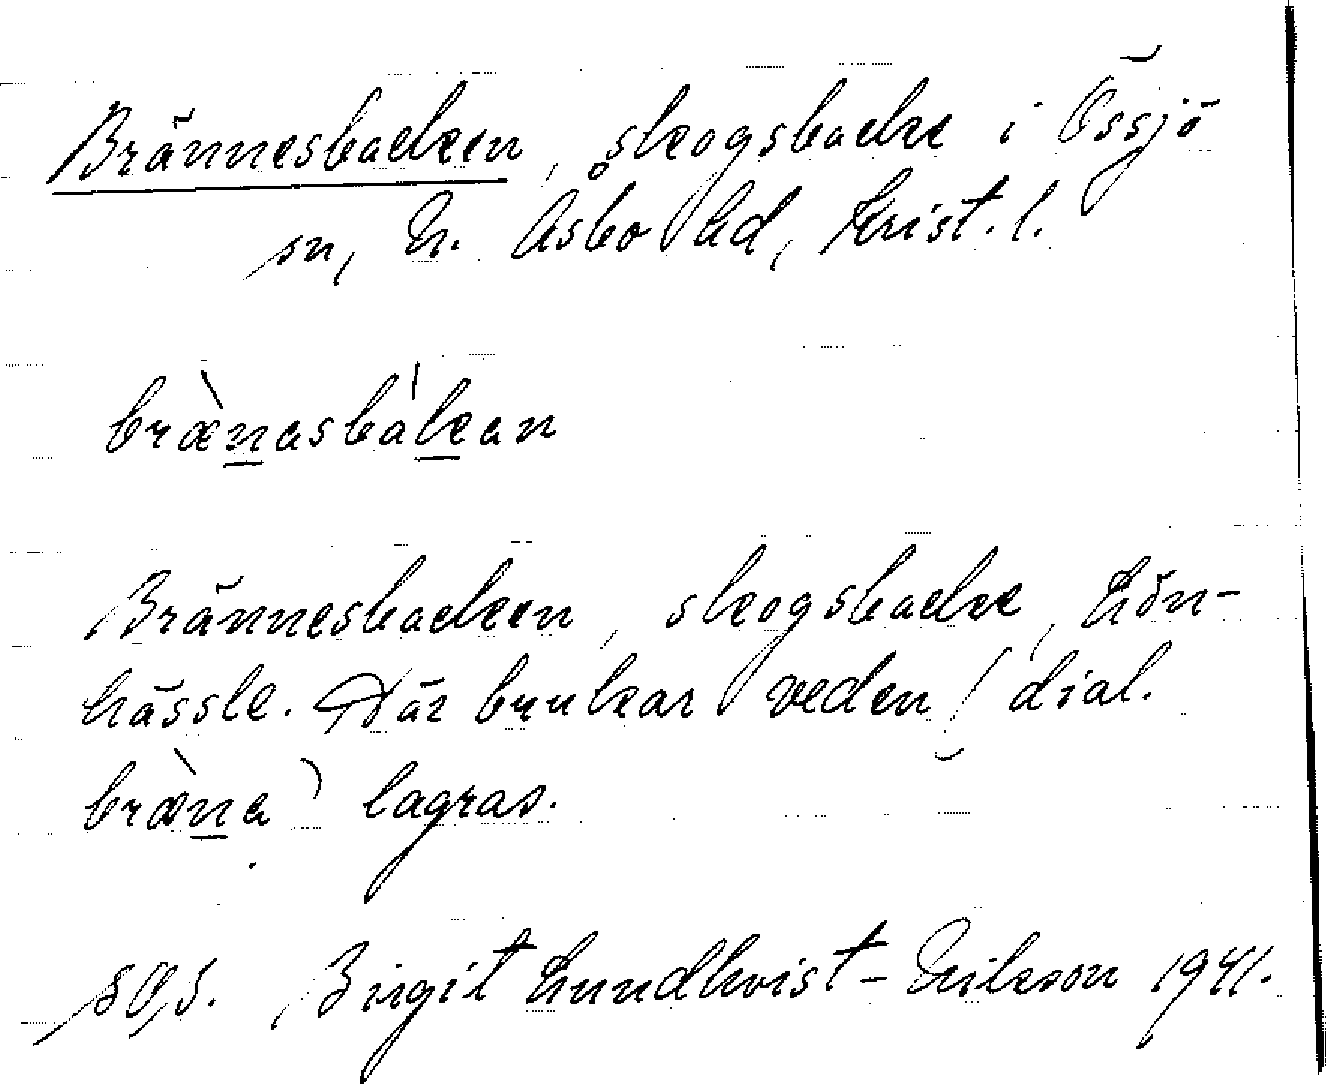 Brännesbacken, skogsbacke i Össjö
sn, N. Åsbo hd, Krist. l.
bræ̀n̲asbák̲an
Brännesbacken, skogsbacke, Lön-
hässle. Där brukar veden (dial.
bræ̀n̲a) lagras.
Birgit Lundkvist-Nilsson 1941.